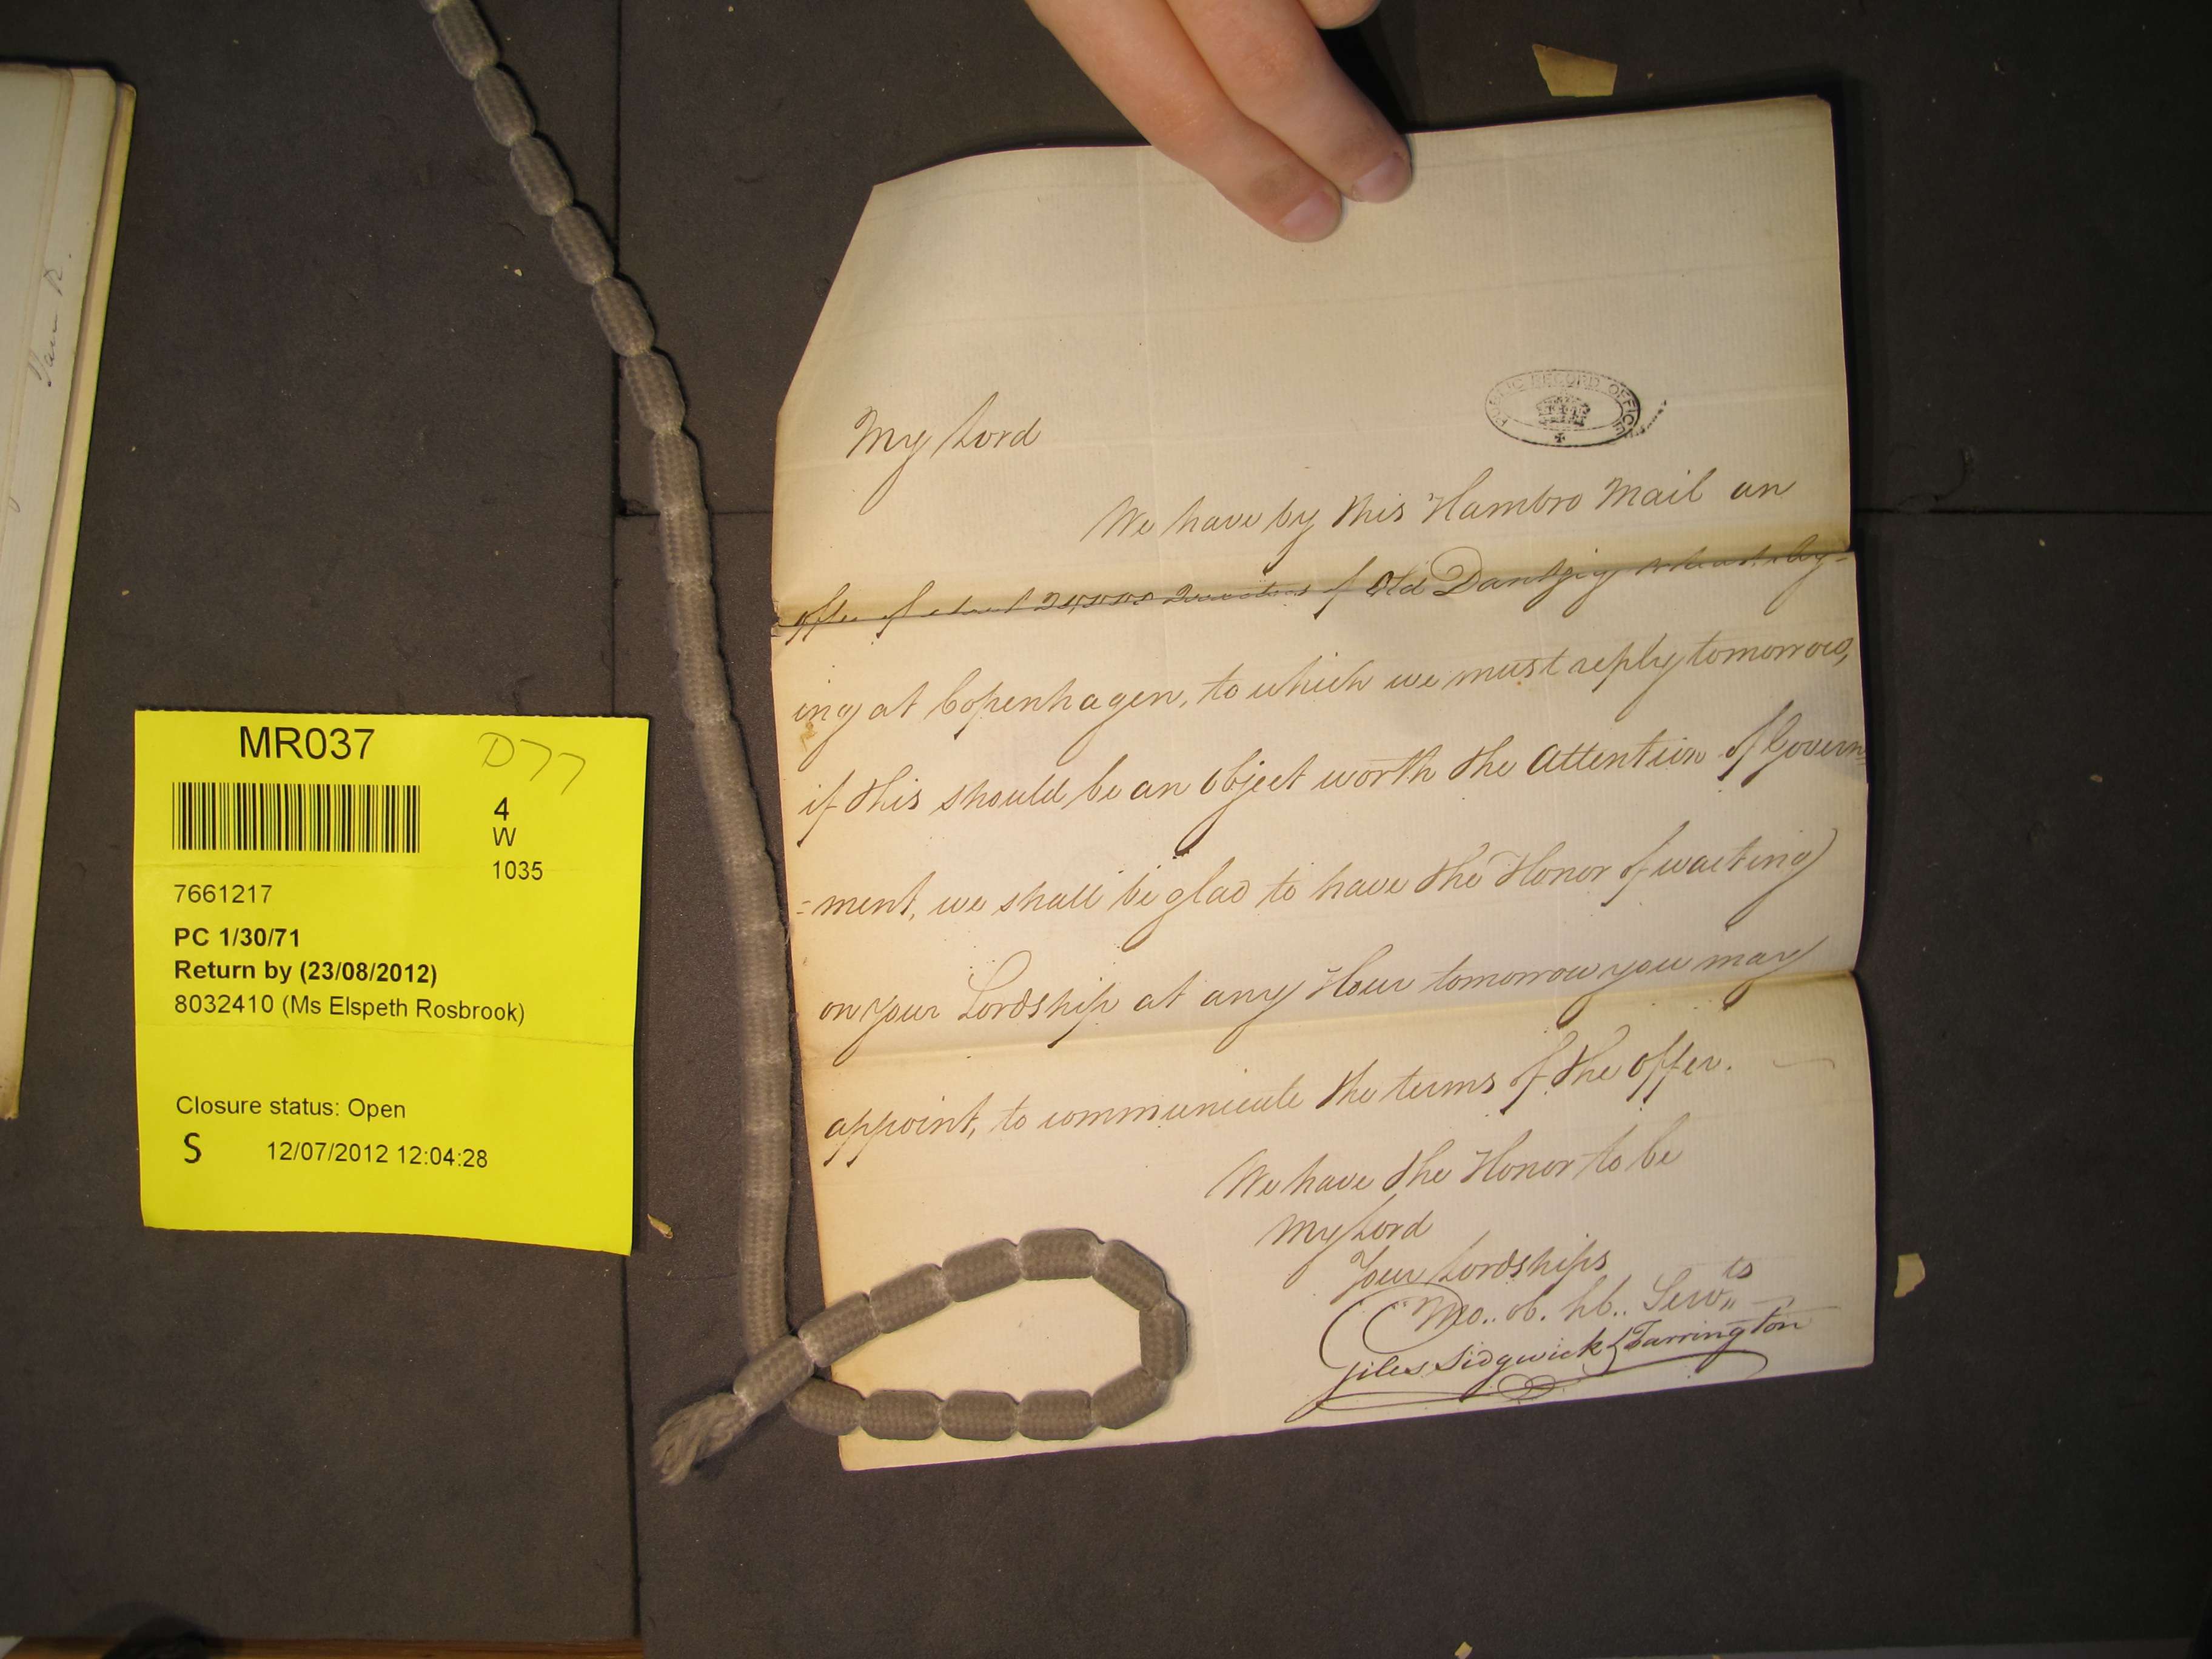 My Lord
We have by this Hambro Mail an
offer of about Quarters of Old Dantzig wheat ly-
ing at Copenhagen, to which we must reply tomorrow,
if this should be an object worth the attention of Govern
=ment, we shall be glad to have the Honor of waiting
on your Lordship at any Hour tomorrow you may
appoint, to communicate the terms of the offer.
We have the Honor to be
My Lord
Your Lordships
Mo.. ob. hb.. Servts
Giles Sidgwick & Tarrington
PUBLIC RECORD OFFICE
MR037
D77
4
W
1035
7661217
PC 1/30/71
Return by (23/08/2012)
8032410 (Ms Elspeth Rosbrook)
Closure status: Open
S 12/07/2012 12:04:28